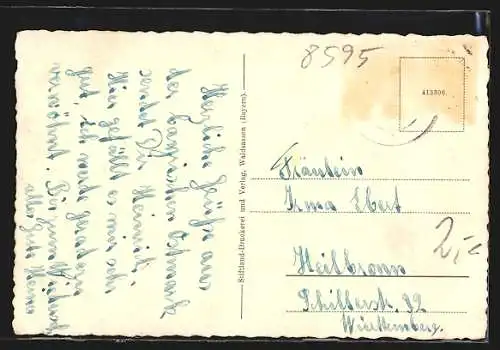 Herzliche Grüße aus
der bayrischen Ostmark
sendet Dir Henriet.
Hier gefällt es mir sehr
gut, ich werde geradezu
verwöhnt. Bis zum Wiedersehn
alles Gute
Stiftland-Druckerei und Verlag, Waldsassen (Bayern).
8595
A13306
Fräulein
Irma Ebert
Heilbronn
Schillerstr. 32
Württemberg.
2,-